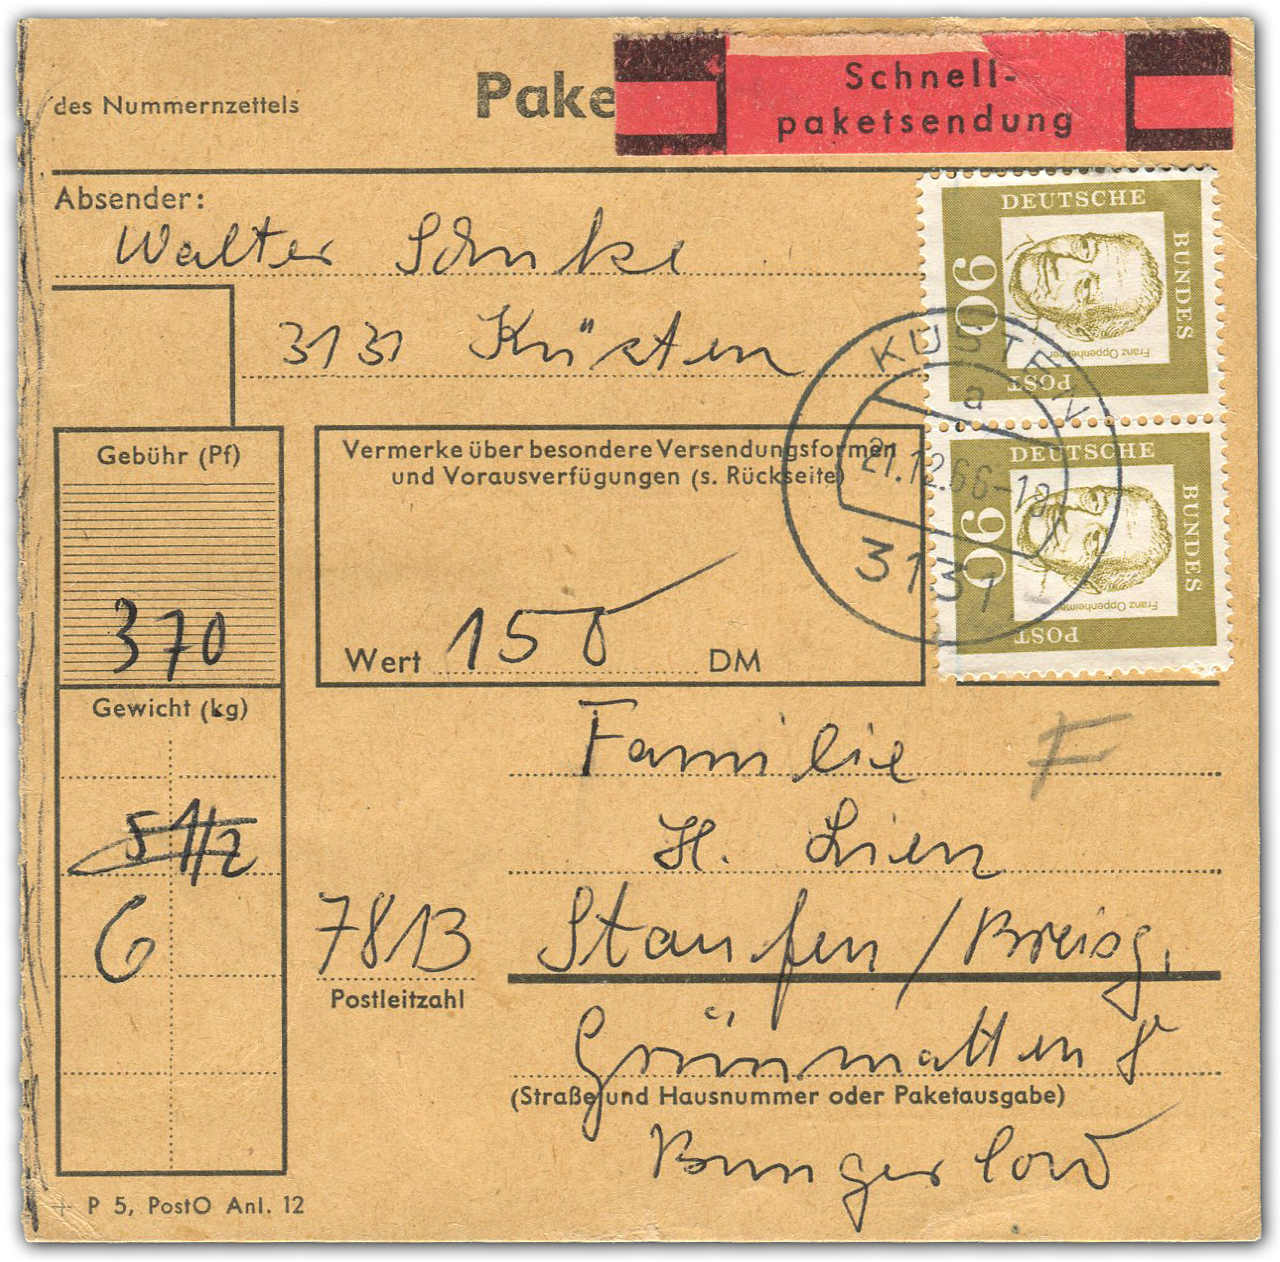 des Nummernzettels
Pake
Schnell-
paketsendung
Absender:
Walter
3131 Küsten
DEUTSCHE
BUNDES
POST
90
Franz Oppenheimer
DEUTSCHE
BUNDES
POST
90
Franz Oppenheimer
KÜSTEN
a
21.12.66-18
3131
Gebühr (Pf)
370
Vermerke über besondere Versendungsformen
und Vorausverfügungen (s. Rückseite)
Wert 150 DM
Gewicht (kg)
5 1/2
6
Familie
F
H. Lien
7813 Staufen/Breisg.
Postleitzahl
Grünmatten 8
(Straße und Hausnummer oder Paketausgabe)
P 5, PostO Anl. 12